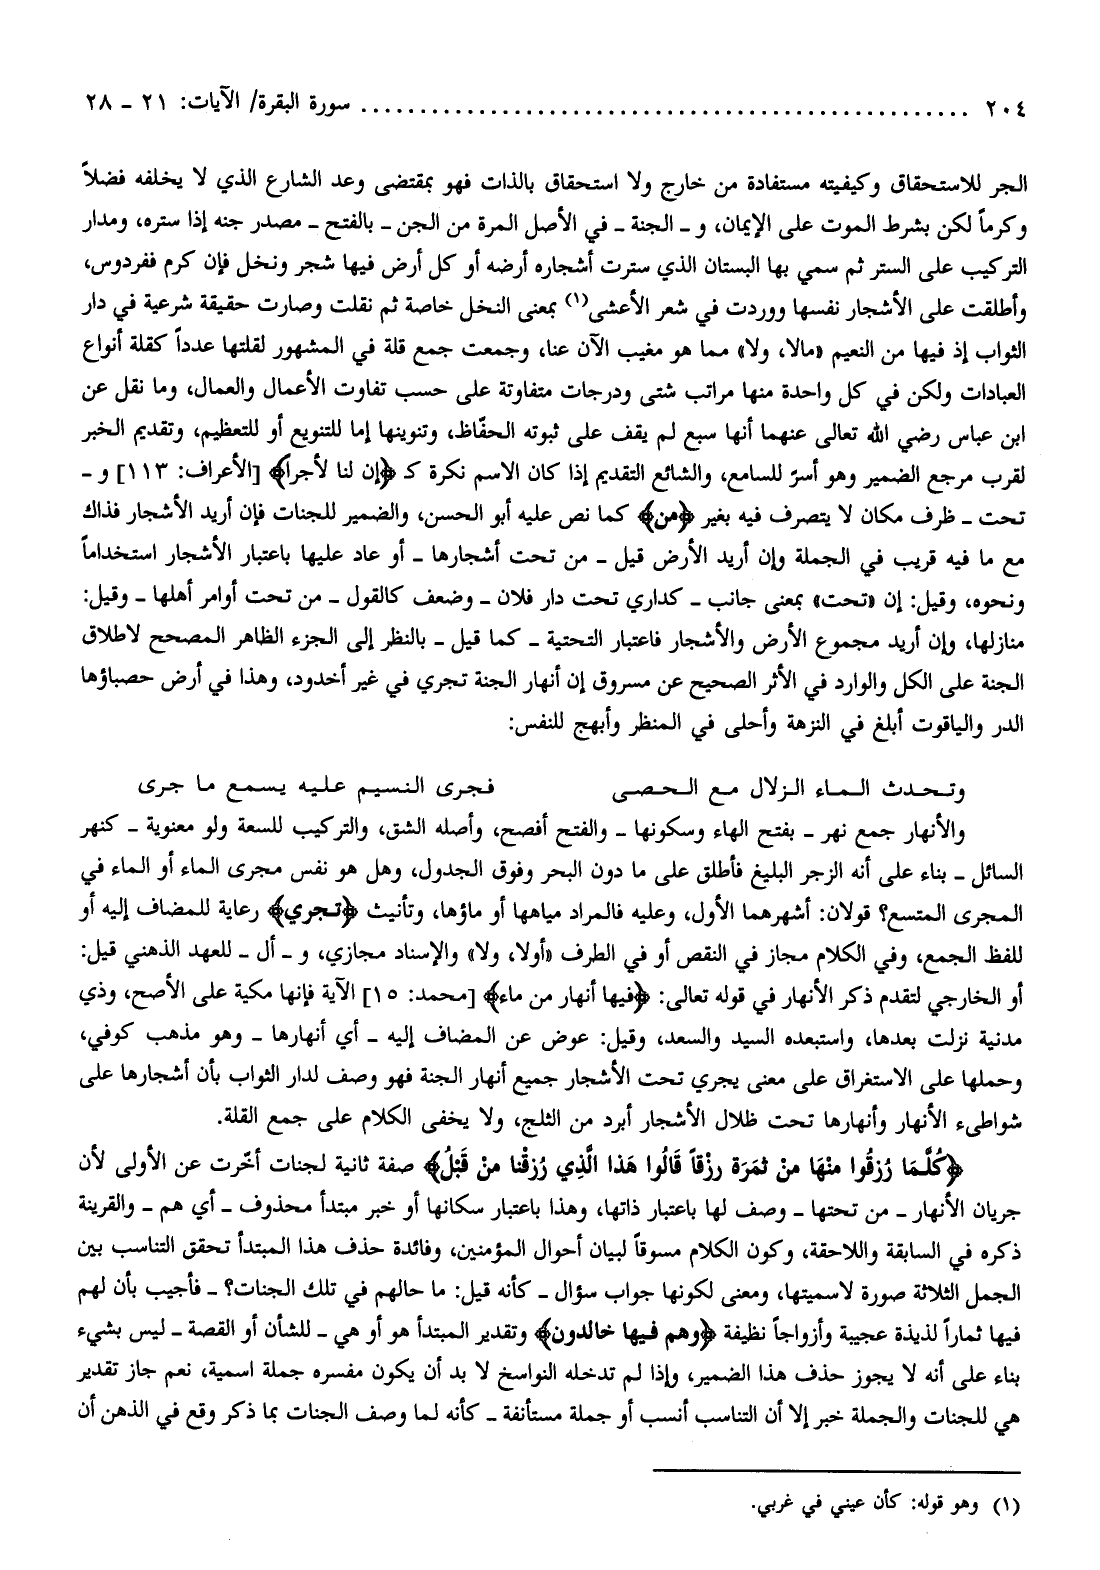 ٢٠٤ .................................................... سورة البقرة/ الآيات: ٢١ ـ ٢٨
الجر للاستحقاق وكيفيته مستفادة من خارج ولا استحقاق بالذات فهو بمقتضى وعد الشارع الذي لا يخلفه فضلاً
وكرماً لكن بشرط الموت على الإيمان، و ـ الجنة ـ في الأصل المرة من الجن ـ بالفتح ـ مصدر جنه إذا ستره، ومدار
التركيب على الستر ثم سمي بها البستان الذي سترت أشجاره أرضه أو كل أرض فيها شجر ونخل فإن كرم ففردوس،
وأطلقت على الأشجار نفسها ووردت في شعر الأعشى(١) بمعنى النخل خاصة ثم نقلت وصارت حقيقة شرعية في دار
الثواب إذ فيها من النعيم «مالا، ولا» مما هو مغيب الآن عنا، وجمعت جمع قلة في المشهور لقلتها عدداً كقلة أنواع
العبادات ولكن في كل واحدة منها مراتب شتى ودرجات متفاوتة على حسب تفاوت الأعمال والعمال، وما نقل عن
ابن عباس رضي الله تعالى عنهما أنها سبع لم يقف على ثبوته الحفّاظ، وتنوينها إما للتنويع أو للتعظيم، وتقديم الخبر
لقرب مرجع الضمير وهو أسرّ للسامع، والشائع التقديم إذا كان الاسم نكرة كـ ﴿إن لنا لأجرا﴾ [الأعراف: ١١٣] و ـ
تحت ـ ظرف مكان لا يتصرف فيه بغير ﴿من﴾ كما نص عليه أبو الحسن، والضمير للجنات فإن أريد الأشجار فذاك
مع ما فيه قريب في الجملة وإن أريد الأرض قيل ـ من تحت أشجارها ـ أو عاد عليها باعتبار الأشجار استخداماً
ونحوه، وقيل: إن «تحت» بمعنى جانب ـ كداري تحت دار فلان ـ وضعف كالقول ـ من تحت أوامر أهلها ـ وقيل:
منازلها، وإن أريد مجموع الأرض والأشجار فاعتبار التحتية ـ كما قيل ـ بالنظر إلى الجزء الظاهر المصحح لاطلاق
الجنة على الكل والوارد في الأثر الصحيح عن مسروق إن أنهار الجنة تجري في غير أخدود، وهذا في أرض حصباؤها
الدر والياقوت أبلغ في النزهة وأحلى في المنظر وأبهج للنفس:
وتحدث الماء الزلال مع الحصى    فجرى النسيم عليه يسمع ما جرى
والأنهار جمع نهر ـ بفتح الهاء وسكونها ـ والفتح أفصح، وأصله الشق، والتركيب للسعة ولو معنوية ـ كنهر
السائل ـ بناء على أنه الزجر البليغ فأطلق على ما دون البحر وفوق الجدول، وهل هو نفس مجرى الماء أو الماء في
المجرى المتسع؟ قولان: أشهرهما الأول، وعليه فالمراد مياهها أو ماؤها، وتأنيث ﴿تجري﴾ رعاية للمضاف إليه أو
للفظ الجمع، وفي الكلام مجاز في النقص أو في الطرف «أولا، ولا» والإسناد مجازي، و ـ أل ـ للعهد الذهني قيل:
أو الخارجي لتقدم ذكر الأنهار في قوله تعالى: ﴿فيها أنهار من ماء﴾ [محمد: ١٥] الآية فإنها مكية على الأصح، وذي
مدنية نزلت بعدها، واستبعده السيد والسعد، وقيل: عوض عن المضاف إليه ـ أي أنهارها ـ وهو مذهب كوفي،
وحملها على الاستغراق على معنى يجري تحت الأشجار جميع أنهار الجنة فهو وصف لدار الثواب بأن أشجارها على
شواطىء الأنهار وأنهارها تحت ظلال الأشجار أبرد من الثلج، ولا يخفى الكلام على جمع القلة.
﴿كُلَّمَا رُزِقُوا مِنْهَا مِنْ ثَمَرَة رِزْقاً قَالُوا هَذَا الَّذِي رُزِقْنا مِنْ قَبْلُ﴾ صفة ثانية لجنات أخّرت عن الأولى لأن
جريان الأنهار ـ من تحتها ـ وصف لها باعتبار ذاتها، وهذا باعتبار سكانها أو خبر مبتدأ محذوف ـ أي هم ـ والقرينة
ذكره في السابقة واللاحقة، وكون الكلام مسوقاً لبيان أحوال المؤمنين، وفائدة حذف هذا المبتدأ تحقق التناسب بين
الجمل الثلاثة صورة لاسميتها، ومعنى لكونها جواب سؤال ـ كأنه قيل: ما حالهم في تلك الجنات؟ ـ فأجيب بأن لهم
فيها ثماراً لذيذة عجيبة وأزواجاً نظيفة ﴿وهم فيها خالدون﴾ وتقدير المبتدأ هو أو هي ـ للشأن أو القصة ـ ليس بشيء
بناء على أنه لا يجوز حذف هذا الضمير، وإذا لم تدخله النواسخ لا بد أن يكون مفسره جملة اسمية، نعم جاز تقدير
هي للجنات والجملة خبر إلا أن التناسب أنسب أو جملة مستأنفة ـ كأنه لما وصف الجنات بما ذكر وقع في الذهن أن
(١) وهو قوله: كأن عيني في غربي.